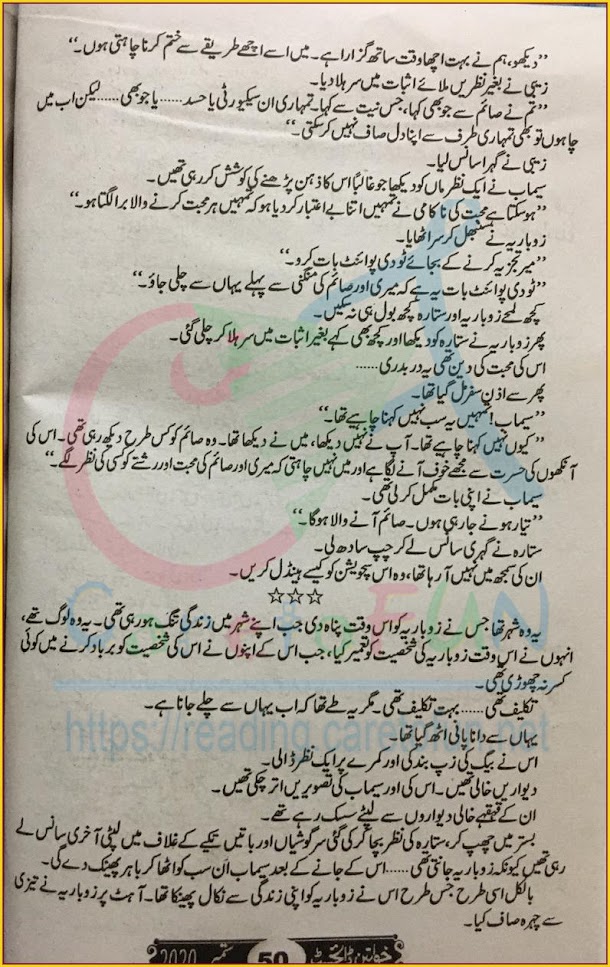 ’’دیکھو، ہم نے بہت اچھا وقت ساتھ گزارا ہے۔ میں اسے اچھے طریقے سے ختم کرنا چاہتی ہوں۔‘‘
زیبی نے بغیر نظریں ملائے اثبات میں سر ہلا دیا۔
’’تم نے صائم سے جو بھی کہا، جس نیت سے کہا۔ تمہاری ان سیکیورٹی یا حسد...... یا جو بھی...... لیکن اب میں
چاہوں تو بھی تمہاری طرف سے اپنا دل صاف نہیں کر سکتی۔‘‘
زیبی نے گہرا سانس لیا۔
سیماب نے ایک نظر ماں کو دیکھا جو غالباً اس کا ذہن پڑھنے کی کوشش کر رہی تھیں۔
’’ہو سکتا ہے محبت کی ناکامی نے تمہیں اتنا بے اعتبار کر دیا ہو کہ تمہیں ہر محبت کرنے والا برا لگتا ہو۔‘‘
زوباریہ نے سنبھل کر سر اٹھایا۔
’’میرا تجزیہ کرنے کے بجائے ٹو دی پوائنٹ بات کرو۔‘‘
’’ٹو دی پوائنٹ بات یہ ہے کہ میری اور صائم کی منگنی سے پہلے یہاں سے چلی جاؤ۔‘‘
کچھ لمحے زوباریہ اور ستارہ کچھ بول ہی نہ سکیں۔
پھر زوباریہ نے ستارہ کو دیکھا اور کچھ بھی کہے بغیر اثبات میں سر ہلا کر چلی گئی۔
اس کی محبت کی دین تھی یہ در بدری......
پھر سے اذنِ سفر مل گیا تھا۔
’’سیماب! تمہیں یہ سب نہیں کہنا چاہیے تھا۔‘‘
’’کیوں نہیں کہنا چاہیے تھا۔ آپ نے نہیں دیکھا، میں نے دیکھا تھا۔ وہ صائم کو کس طرح دیکھ رہی تھی۔ اس کی
آنکھوں کی حسرت سے مجھے خوف آنے لگا ہے اور میں نہیں چاہتی کہ میری اور صائم کی محبت اور رشتے کو کسی کی نظر لگے۔‘‘
سیماب نے اپنی بات مکمل کر لی تھی۔
’’تیار ہونے جا رہی ہوں۔ صائم آنے والا ہوگا۔‘‘
ستارہ نے گہری سانس لے کر چپ سادھ لی۔
ان کی سمجھ میں نہیں آ رہا تھا، وہ اس سیچویشن کو کیسے ہینڈل کریں۔
☆☆☆
یہ وہ شہر تھا جس نے زوباریہ کو اس وقت پناہ دی جب اپنے شہر میں زندگی تنگ ہو رہی تھی۔ یہ وہ لوگ تھے،
انہوں نے اس وقت زوباریہ کی شخصیت کو تعمیر کیا، جب اس کے اپنوں نے اس کی شخصیت کو برباد کرنے میں کوئی
کسر نہ چھوڑی تھی۔
تکلیف تھی...... بہت تکلیف تھی۔ مگر یہ طے تھا کہ اب یہاں سے چلے جانا ہے۔
یہاں سے دانا پانی اٹھ گیا تھا۔
https://reading.carefofun.net
اس نے بیگ کی زپ بند کی اور کمرے پر ایک نظر ڈالی۔
دیواریں خالی تھیں۔ اس کی اور سیماب کی تصویریں اتر چکی تھیں۔
ان کے قہقہے خالی دیواروں سے لپٹے سسک رہے تھے۔
بستر میں چھپ کر، ستارہ کی نظر بچا کر کی گئی سرگوشیاں اور باتیں تکیے کے غلاف میں لپٹی آخری سانس لے
رہی تھیں کیونکہ زوباریہ جانتی تھی...... اس کے جانے کے بعد سیماب ان سب کو اٹھا کر باہر پھینک دے گی۔
بالکل اسی طرح جس طرح اس نے زوباریہ کو اپنی زندگی سے نکال پھینکا تھا۔ آہٹ پر زوباریہ نے تیزی
سے چہرہ صاف کیا۔
خواتین ڈائجسٹ 50 ستمبر 2020